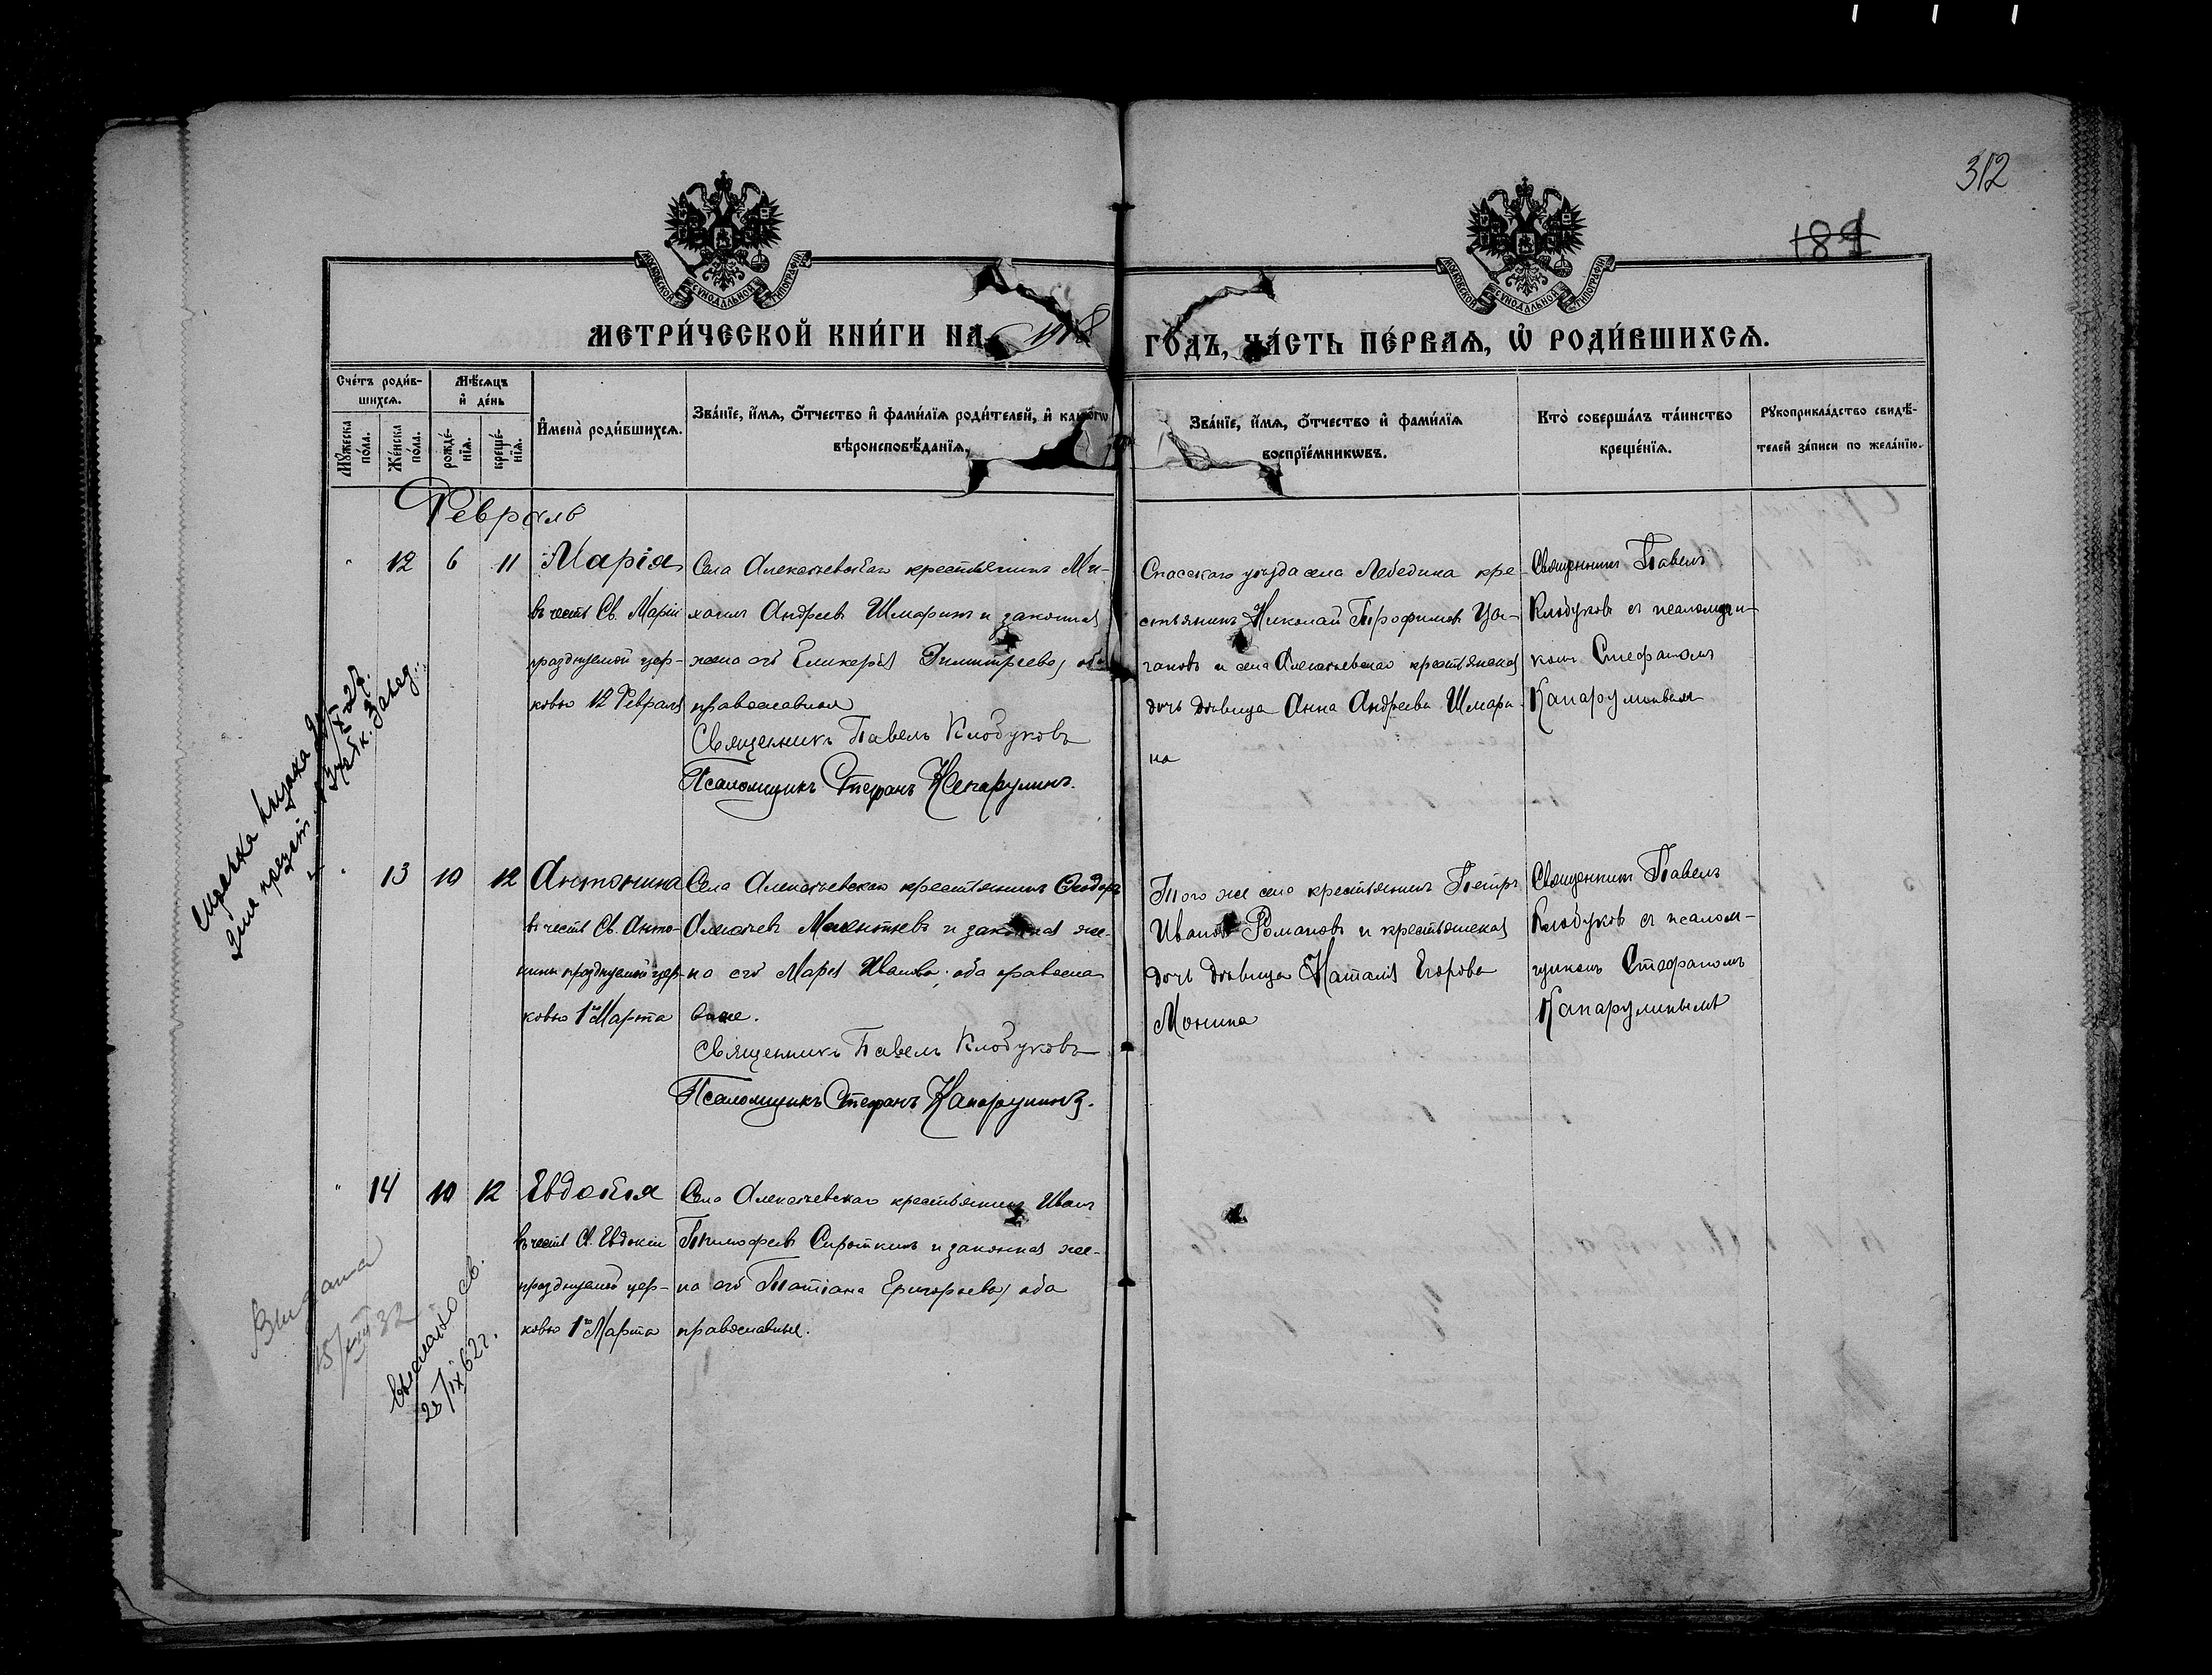 312
181
МОСКОВСКОЙ СУНОДАЛЬНОЙ ТИПОГРАФІИ
МОСКОВСКОЙ СУНОДАЛЬНОЙ ТИПОГРАФІИ
МЕТРИ́ЧЕСКОЙ КНИ́ГИ НА 1918
ГО́ДЪ, ЧА́СТЬ ПЕ́РВАѦ, Ѡ҆ РОДИ́ВШИХСѦ.
Сче́тъ роди́в-
шихсѧ.
Мѣ́сѧцъ
и҆ де́нь
Мꙋ́жеска
по́ла.
Же́нска
по́ла.
рожде́-
нїѧ.
креще́-
нїѧ.
И҆мена̀ роди́вшихсѧ.
Зва́нїе, и҆́мѧ, ѻ҆́тчество и҆ фами́лїѧ роди́телей, и҆ како́гѡ
вѣроисповѣ́данїѧ.
Зва́нїе, и҆́мѧ, ѻ҆́тчество и҆ фами́лїѧ
воспрїе́мникѡвъ.
Кто̀ соверша́лъ та́инство
креще́нїѧ.
Рꙋкоприкла́дство свидѣ́-
телей за́писи по жела́нїю.
Февраль
" 12 6 11
Марія
въ честь Св. Маріи
празднуемой цер-
ковью 12 Февраля
Села Алексѣевскаго крестьянинъ Ми-
хаилъ Андреевъ Шмаринъ и законная
жена его Гликерія Димитріева, оба
православные
Священникъ Павелъ Клобуковъ
Псаломщикъ Стефанъ Капарулинъ.
Спасскаго уѣзда села Лебедина кре-
стьянинъ Николай Трофимовъ Цы-
гановъ и села Алексѣевскаго крестьянская
дочь дѣвица Анна Андреева Шмари-
на
Священникъ Павелъ
Клобуковъ съ псаломщи-
комъ Стефаномъ
Капарулинымъ
" 13 10 12
Антонина
въ честь Св. Анто-
нины празднуемой цер-
ковью 1го Марта
Села Алексѣевскаго крестьянинъ Ѳеодоръ
Алексѣевъ и законная же-
на его Марія Иванова, оба правосла-
вные.
Священникъ Павелъ Клобуковъ
Псаломщикъ Стефанъ Капарулинъ.
Того же села крестьянинъ Петръ
Ивановъ Романовъ и крестьянская
дочь дѣвица Наталія Егорова
Монина
Священникъ Павелъ
Клобуковъ съ псалом-
щикомъ Стефаномъ
Капарулинымъ
" 14 10 12
Евдокія
въ честь Св. Евдокіи
празднуемой цер-
ковью 1го Марта
Села Алексѣевскаго крестьянинъ Иванъ
Тимофеевъ Сироткинъ и законная же-
на его Татіана Григорьева, оба
православные.
справка выдана
для
Выдана
15/VIII 32
Выслано св.
25/IX 62 г.